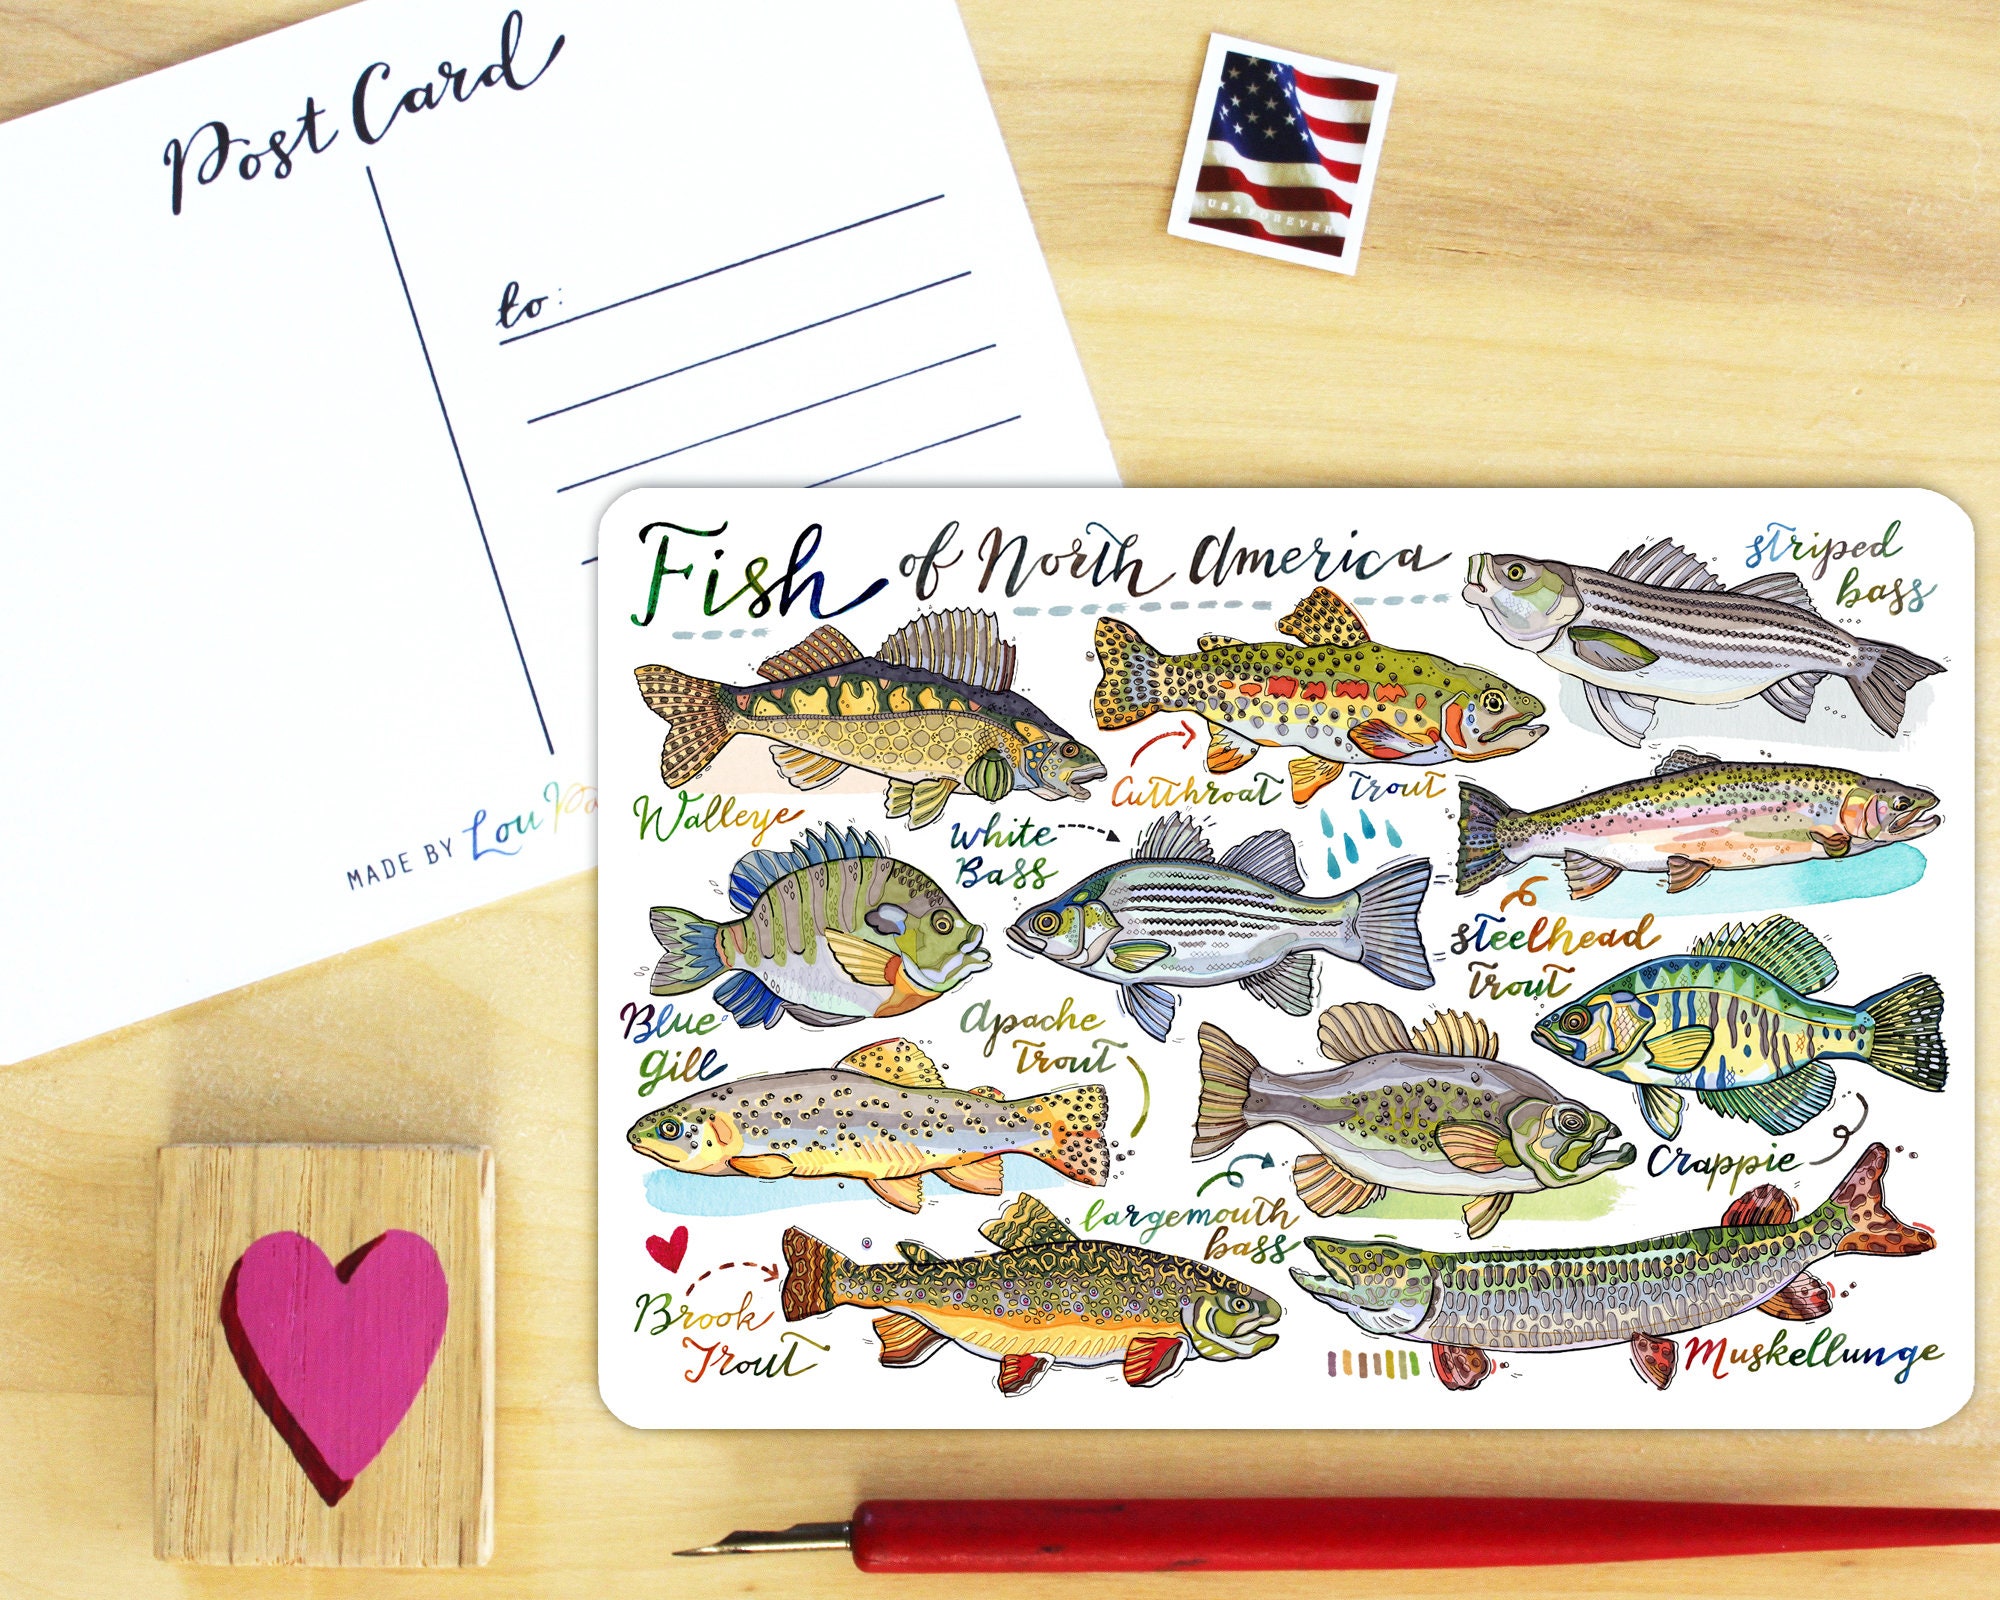 Post Card
to:
MADE BY Lou
USA FOREVER
Fish of North America
striped
bass
Walleye
Cutthroat Trout
White
Bass
steelhead
Trout
Blue
Gill
Apache
Trout
Crappie
largemouth
bass
Brook
Trout
Muskellunge